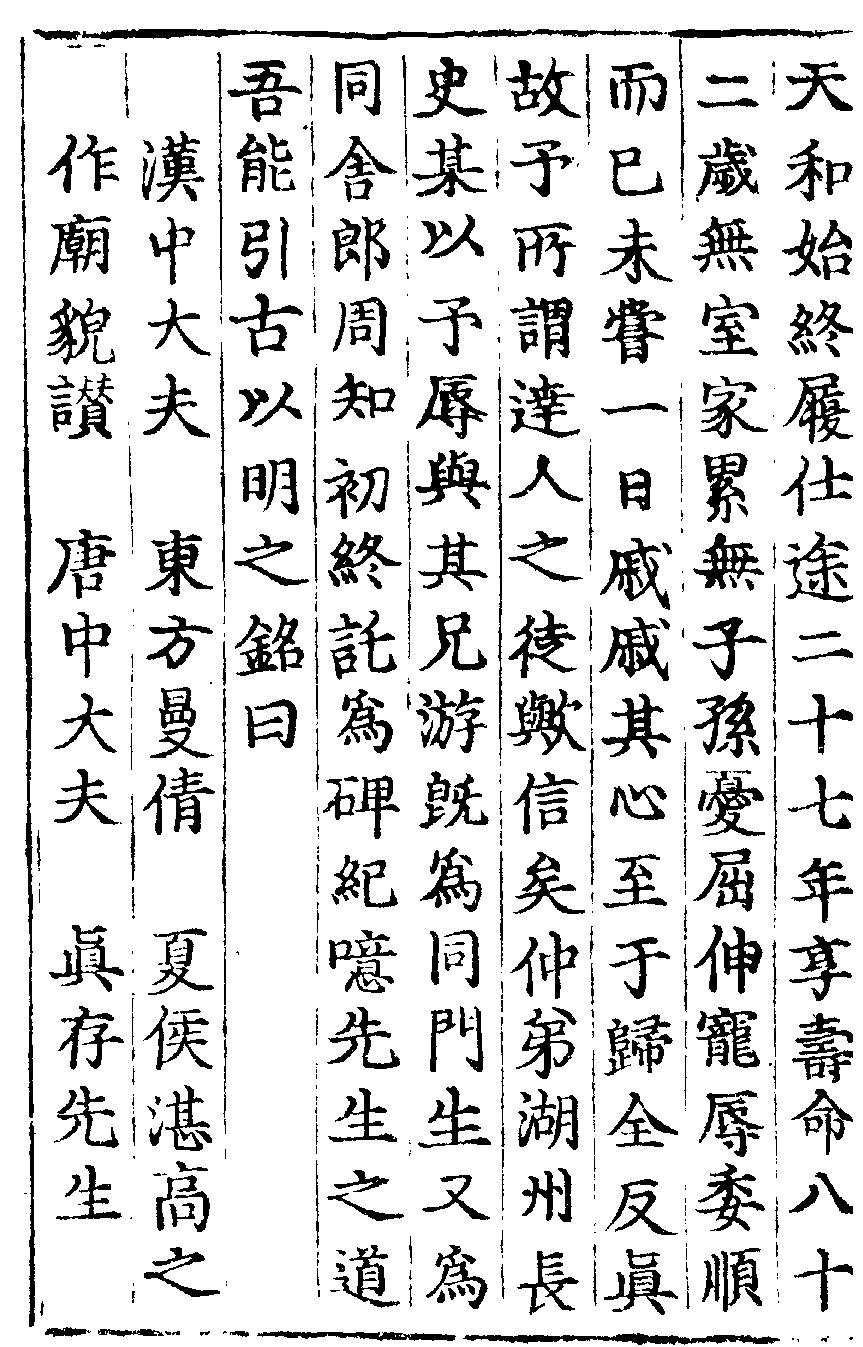 天和始終履仕途二十七年享壽命八十
二歲無室家累無子孫憂屈伸寵辱委順
而已未嘗一日戚戚其心至于歸全反眞
故予所謂達人之徒歟信矣仲弟湖州長
史某以予辱與其兄游旣爲同門生又爲
同舍郎周知初終託爲碑紀噫先生之道
吾能引古以明之銘曰
漢中大夫　東方曼倩　夏侯湛高之
作廟貌讃　唐中大夫　眞存先生